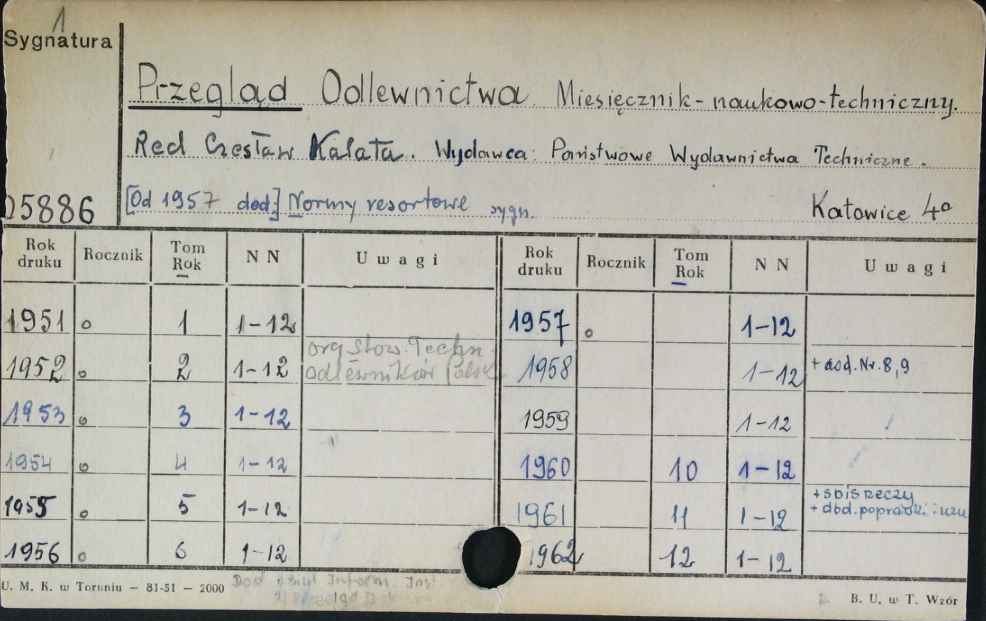 1
Sygnatura
Przegląd Odlewnictwa Miesięcznik-naukowo-techniczny.
Red Czesław Kalata. Wydawca: Państwowe Wydawnictwa Techniczne.
05886 [Od 1957 dod.] Normy resortowe sygn. Katowice 4º
Rok druku Rocznik Tom Rok N N Uwagi Rok druku Rocznik Tom Rok N N Uwagi
1951 o 1 1-12 1957 o 1-12
org Stow. Techn.
1952 o 2 1-12 Odlewników 1958 1-12 + dod. Nr. 8,9
1953 o 3 1-12 1959 1-12
1954 o 4 1-12 1960 10 1-12
+ spis rzeczy
1955 o 5 1-12 1961 11 1-12 + dod. poprawki
1956 o 6 1-12 1962 12 1-12
U. M. K. w Toruniu — 81-51 — 2000 Inform. B. U. w T. Wzór